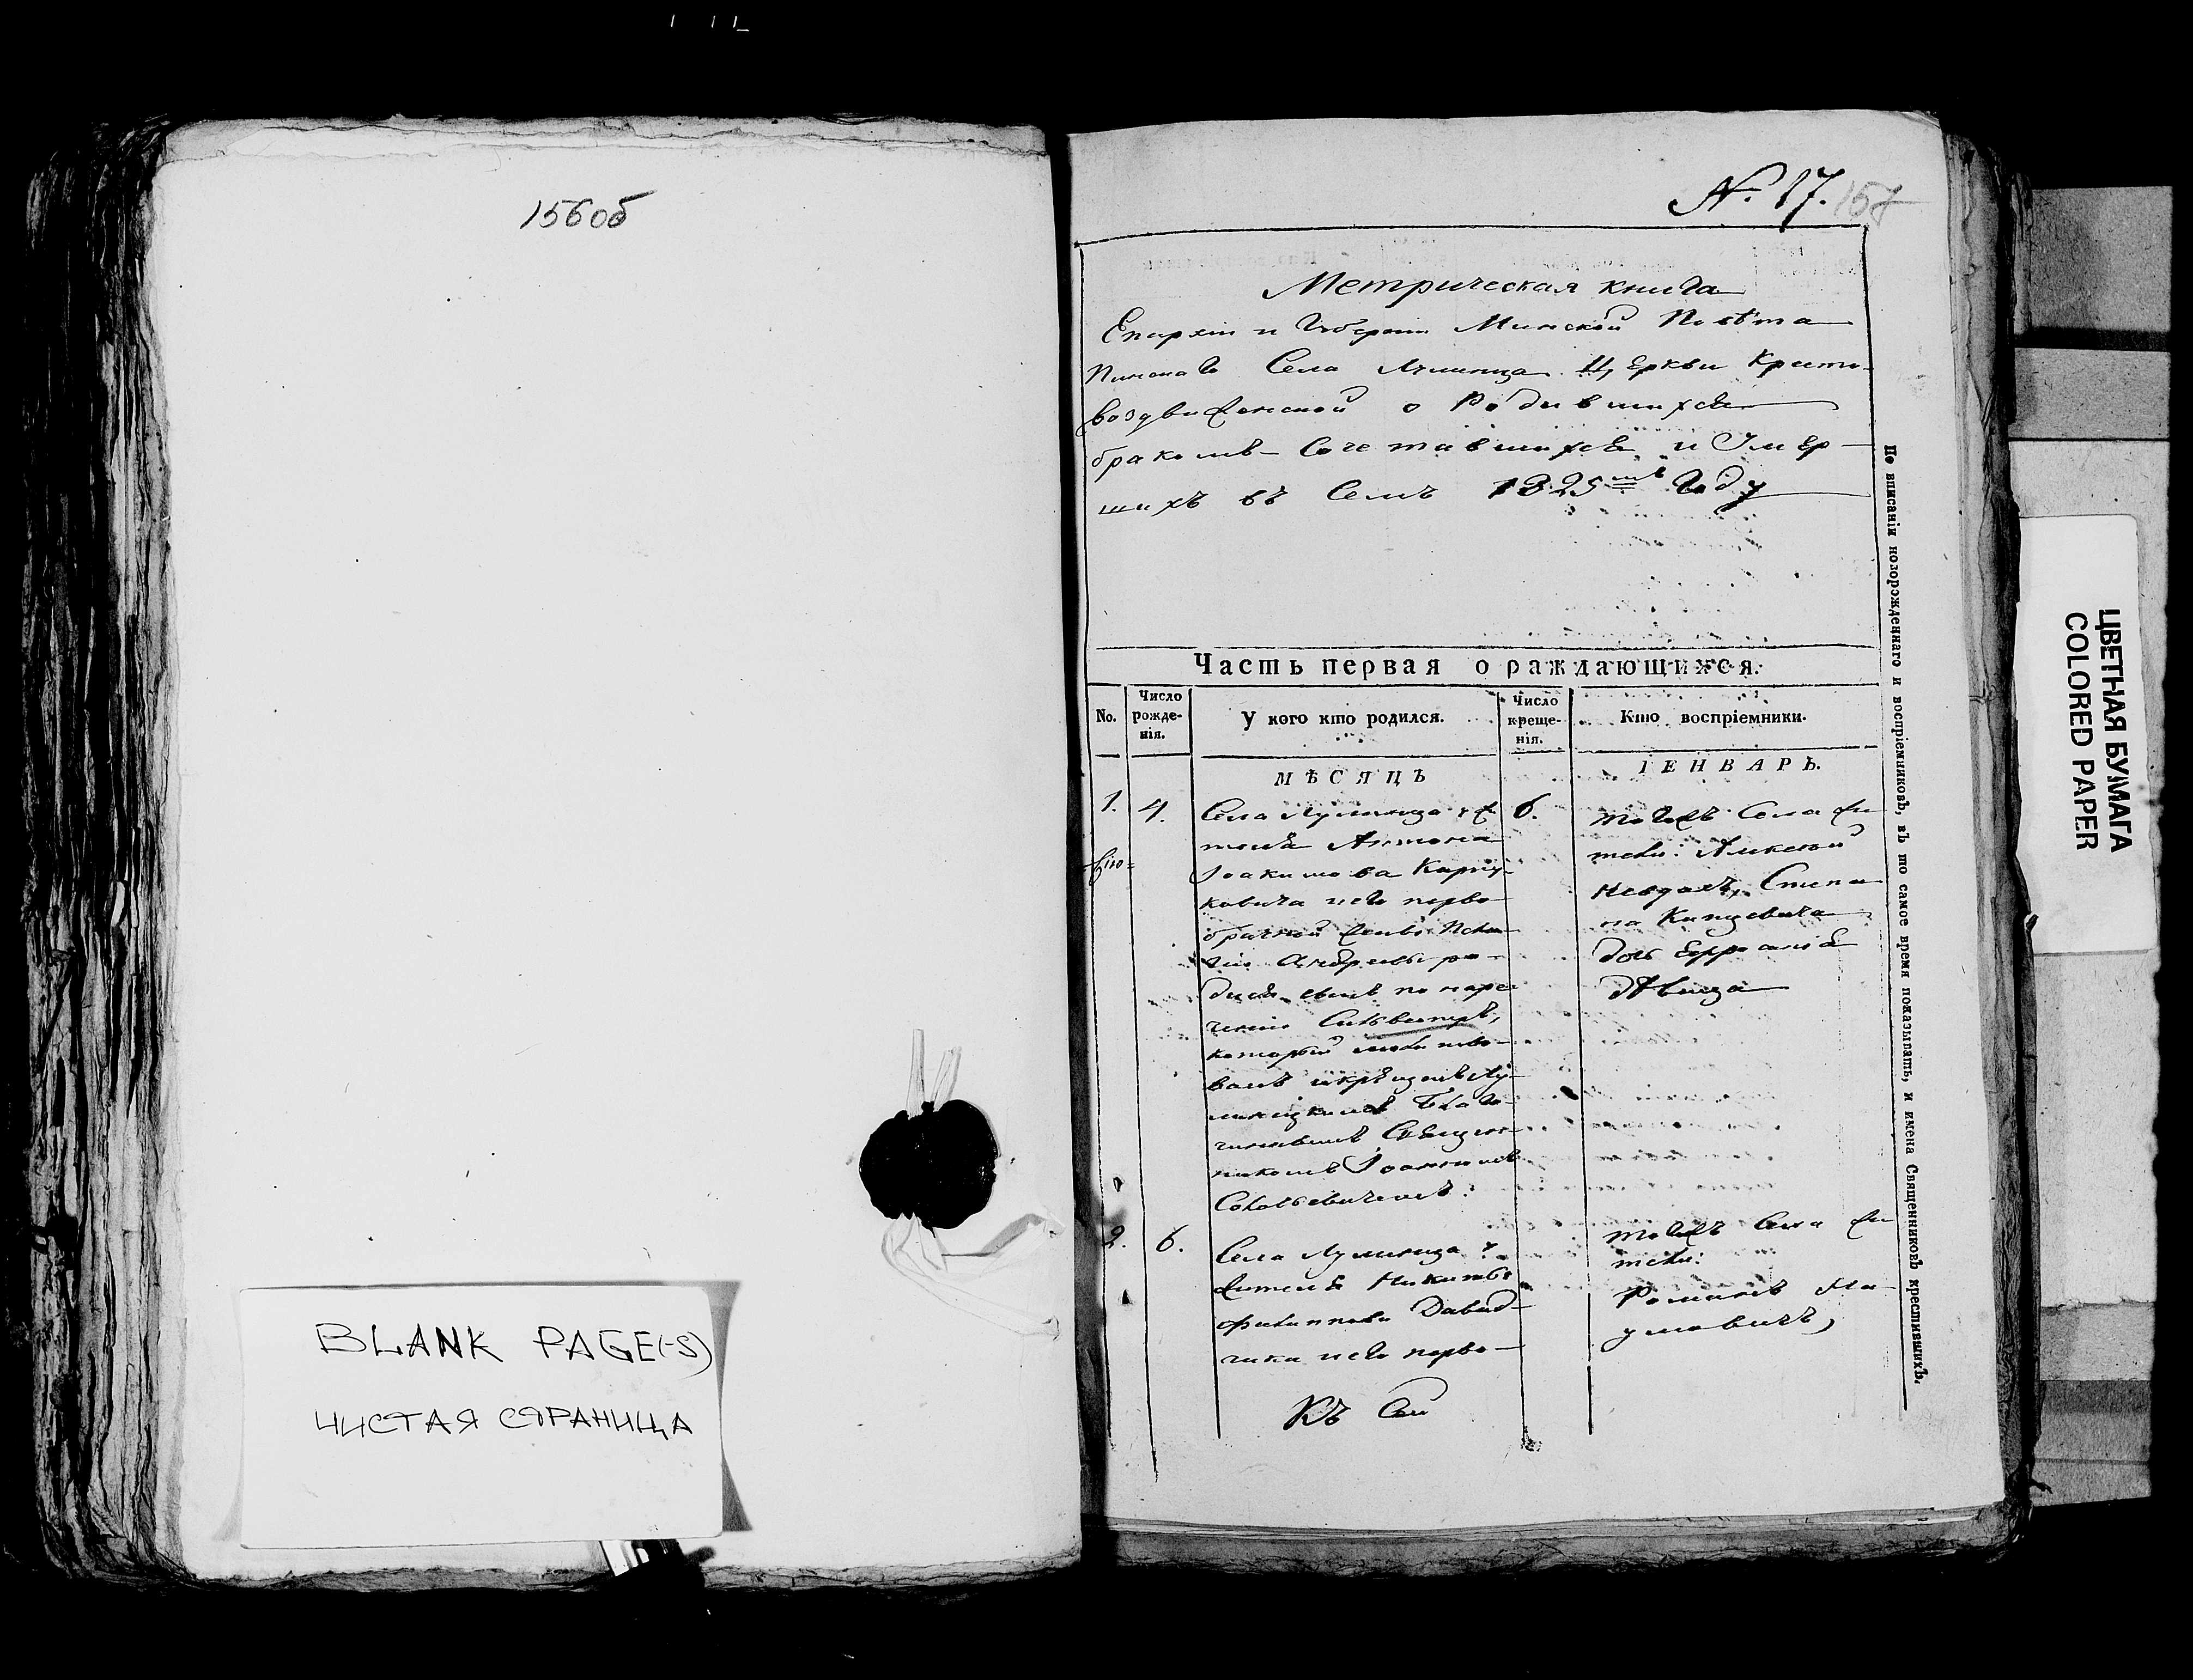 156об
BLANK PAGE(-S)
ЧИСТАЯ СТРАНИЦА
№. 17. 157
Метрическая книга
Епархіи и Губерніи Минской Повѣта
Пинскаго Села Лунинца Церкви Кресто-
воздвиженской о Родившихся
бракомъ Сочетавшихся и Умер-
шихъ въ Семъ 1825мъ Году
Часть первая о раждающихся.
No.
Число рожде-нія.
У кого кто родился.
Число креще-нія.
Кто воспріемники.
МѢСЯЦЪ ІЕНВАРЬ.
1. 4.
Села Лунинца
Антона
Іоакимова Карпу-
ковича и его перво-
брачной жены
Андреевы ро-
дися сынъ по наре-
ченію Силвестръ,
который молитво-
ванъ и крещенъ Лу-
нинецкимъ Благо-
чиннымъ Священ-
никомъ Іоанномъ
6.
тогожъ Села жи-
тели: Алексѣй
Степа-
на
дочь Евфросинія
дѣвица
2. 6.
Села Лунинца
жителя Никиты
Филиппова Давид-
чика и его перво-
тогожъ Села жи-
тели:
Романъ На-
умовичъ,
Къ Сей
По вписаніи новорожденнаго и воспріемниковъ, въ то самое время показывать, и имена Священниковъ крестившихъ.
ЦВЕТНАЯ БУМАГА
COLORED PAPER